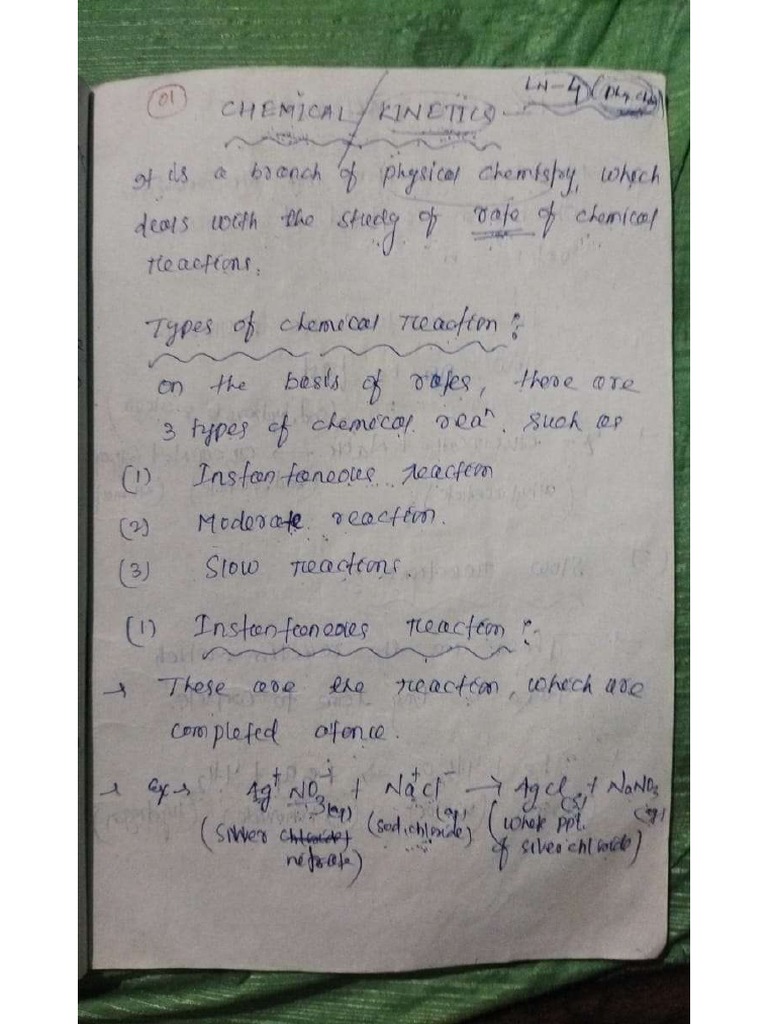 01
LN-4 (Phy. Che)
CHEMICAL KINETICS
It is a branch of physical chemistry, which
deals with the study of rate of chemical
reactions.
Types of chemical reaction:
on the basis of rates, there are
3 types of chemical reaⁿ. such as
(1) Instantaneous reaction
(2) Moderate reaction.
(3) Slow reactions.
(1) Instantaneous reaction:
→ These are the reaction, which are
completed atonce.
→ Ex→ Ag⁺NO₃⁻(aq) + Na⁺Cl⁻(aq) → AgCl(s) + NaNO₃(aq)
(Silver chloride (sod. chloride) (white ppt.
nitrate) of silver chloride)